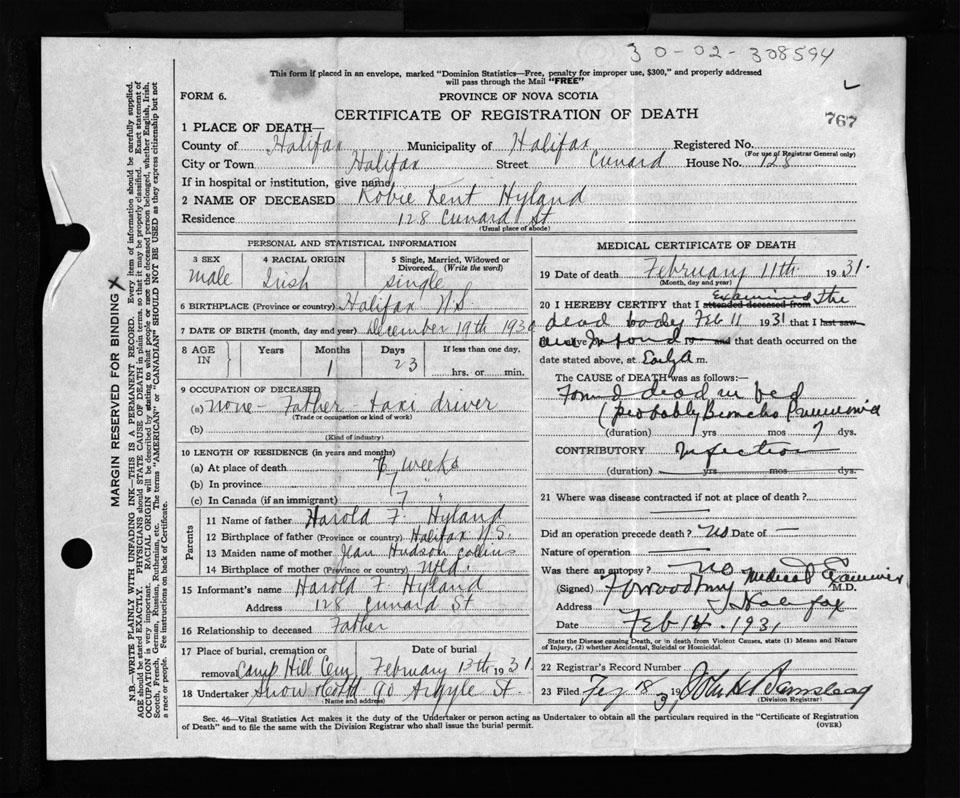 30-02-308594
This form if placed in an envelope, marked "Dominion Statistics—Free, penalty for improper use, $300," and properly addressed
will pass through the Mail "FREE"
FORM 6.
PROVINCE OF NOVA SCOTIA
CERTIFICATE OF REGISTRATION OF DEATH
767
1 PLACE OF DEATH—
County of Halifax Municipality of Halifax Registered No.
(For use of Registrar General only)
City or Town Halifax Street Cunard House No. 128
If in hospital or institution, give name
2 NAME OF DECEASED Robie Kent Hyland
Residence 128 Cunard St
(Usual place of abode)
PERSONAL AND STATISTICAL INFORMATION
3 SEX 4 RACIAL ORIGIN 5 Single, Married, Widowed or
Divorced. (Write the word)
Male Irish Single
6 BIRTHPLACE (Province or country) Halifax N.S.
7 DATE OF BIRTH (month, day and year) December 19th 1930
8 AGE IN Years Months Days If less than one day,
1 23 hrs. or min.
9 OCCUPATION OF DECEASED
(a) None - Father - taxi driver
(Trade or occupation or kind of work)
(b)
(Kind of industry)
10 LENGTH OF RESIDENCE (in years and months)
(a) At place of death 7 weeks
(b) In province 7
(c) In Canada (if an immigrant) 7 "
Parents
11 Name of father Harold F. Hyland
12 Birthplace of father (Province or country) Halifax N.S.
13 Maiden name of mother Jean Hudson Collins
14 Birthplace of mother (Province or country) Nfld.
15 Informant's name Harold F. Hyland
Address 128 Cunard St
16 Relationship to deceased Father
17 Place of burial, cremation or Date of burial
removal Camp Hill Cem February 13th 1931.
18 Undertaker Snow & Co Ltd 90 Argyle St.
(Name and address)
MEDICAL CERTIFICATE OF DEATH
19 Date of death February 11th 1931.
(Month, day and year)
20 I HEREBY CERTIFY that I attended deceased from Examined the
dead body Feb 11 1931 that I last saw
alive and that death occurred on the
date stated above, at Early A m.
The CAUSE OF DEATH was as follows:—
Found dead in bed
(probably Broncho Pneumonia
(duration) yrs mos 7 dys.
CONTRIBUTORY Infection
(duration) yrs mos dys.
21 Where was disease contracted if not at place of death?
Did an operation precede death? No Date of —
Nature of operation
Was there an autopsy? No Medical Examiner
(Signed) M.D.
Address Halifax
Date Feb 14. 1931
State the Disease causing Death, or in death from Violent Causes, state (1) Means and Nature
of Injury, (2) whether Accidental, Suicidal or Homicidal.
22 Registrar's Record Number
23 Filed 18 1931
(Division Registrar)
Sec. 46—Vital Statistics Act makes it the duty of the Undertaker or person acting as Undertaker to obtain all the particulars required in the "Certificate of Registration
of Death" and to file the same with the Division Registrar who shall issue the burial permit.
(OVER)
MARGIN RESERVED FOR BINDING X
N.B.—WRITE PLAINLY WITH UNFADING INK—THIS IS A PERMANENT RECORD. Every item of information should be carefully supplied.
AGE should be stated EXACTLY. PHYSICIANS should STATE CAUSE OF DEATH in plain terms, so that it may be properly classified. Exact statement of
OCCUPATION is very important. RACIAL ORIGIN will be described by stating to what people or race the deceased person belonged, whether English, Irish,
Scotch, French, German, Russian, Ruthenian, etc. The terms "AMERICAN" or "CANADIAN" SHOULD NOT BE USED as they express citizenship but not
a race or people. See instructions on back of Certificate.